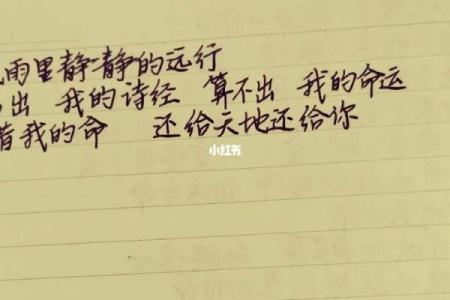 雨里静静的远行
出 我的诗经 算不出 我的命运
着我的命 还给天地还给你
小红书